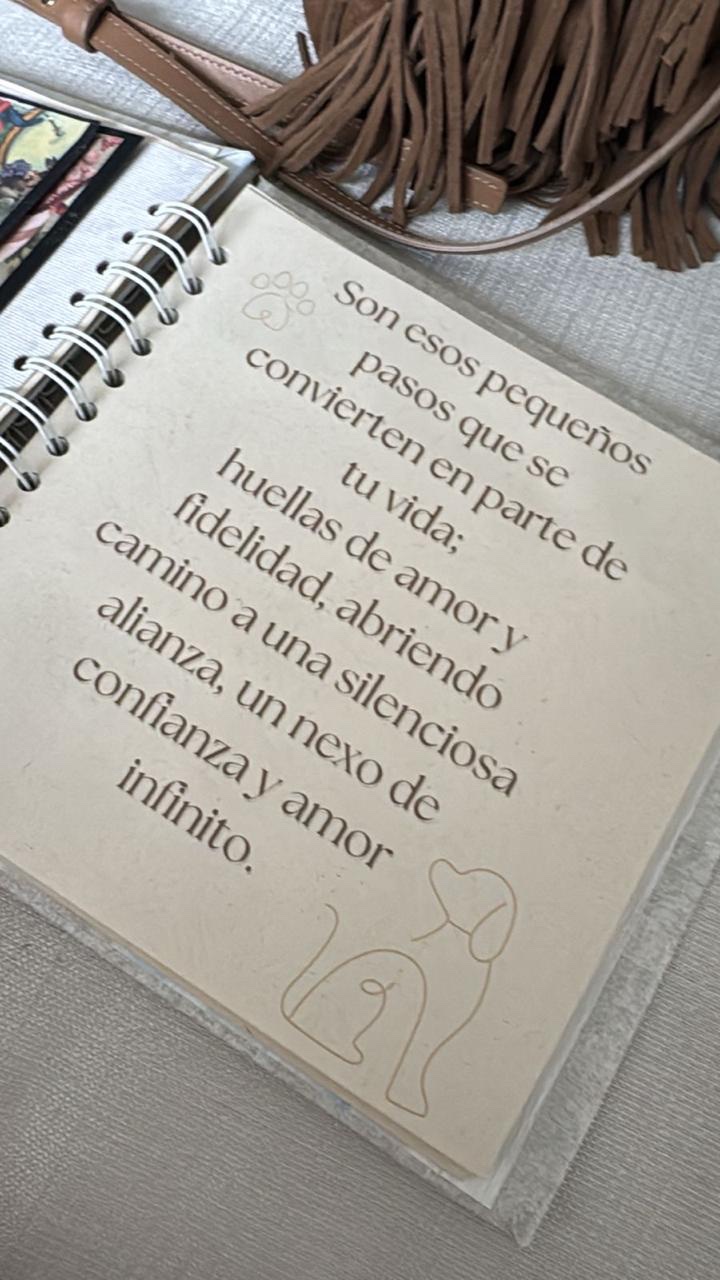 Son esos pequeños
pasos que se
convierten en parte de
tu vida;
huellas de amor y
fidelidad, abriendo
camino a una silenciosa
alianza, un nexo de
confianza y amor
infinito.